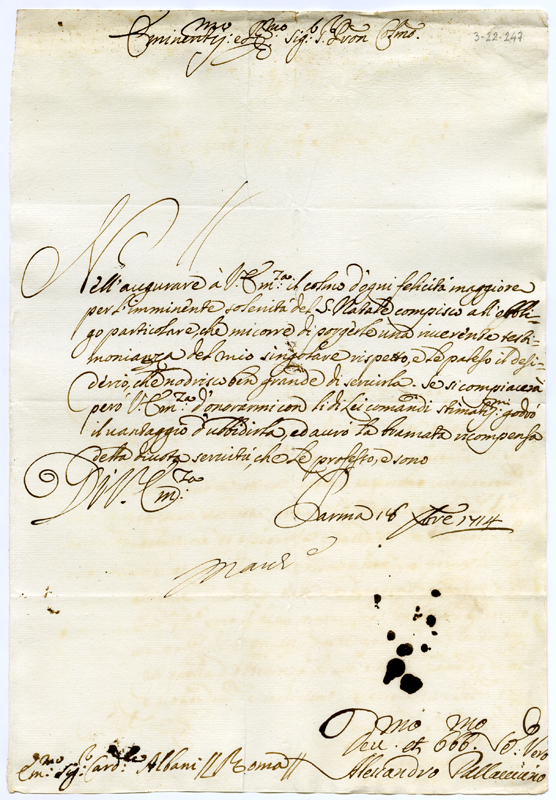 Eminentis:mo e Re:mo Sig:r P:ron Col:mo
3-22-247
Nell'augurare à V:Em:za il colmo d'ogni felicità maggiore
per l'imminente solenità del S. Natale compisco all'obbli-
go particolare, che mi corre di porgerle una riverente testi-
monianza del mio singolare rispetto, e Le paleso il desi-
derio, che nodrisco ben grande di servirla. Se si compiacerà
però V:Em:za d'onorarmi con li di Lei comandi stimatis:mi godrò
il vantaggio d'ubbidirla, ed avrò la bramata ricompensa
della giusta servitù, che Le professo, e sono
Di V:Em:za
Parma 18 Xbre 1714
Em:mo Sig:r Card:le Albani // Roma //
Dev:mo et Obb:mo Se: Vero
Alessandro